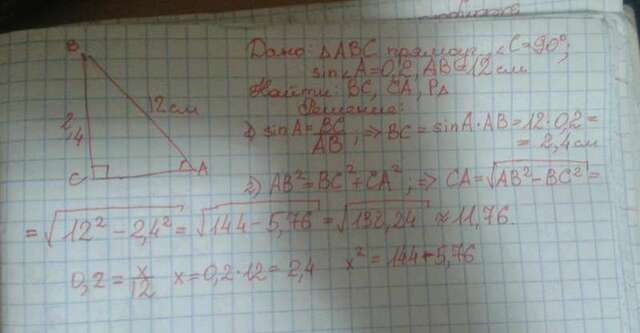 Дано: △ABC прямоуг., ∠C=90°;
sin∠A=0,2, AB=12 см
Найти: BC, CA, P△
Решение:
1) sin A = BC/AB; => BC = sinA·AB = 12·0,2 =
= 2,4 см
2) AB² = BC² + CA²; => CA = √(AB² − BC²) =
= √(12² − 2,4²) = √(144 − 5,76) = √(138,24) ≈ 11,76
0,2 = x/12 x = 0,2·12 = 2,4 x² = 144 − 5,76
B
12 см
2,4
C
A